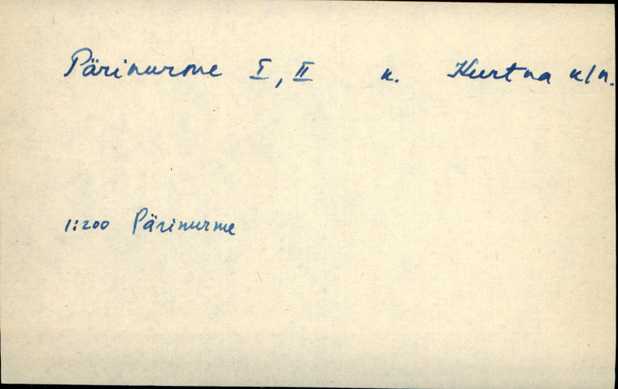 Pärinurme I, II k. Kurtna k/n.
1:200 Pärinurme